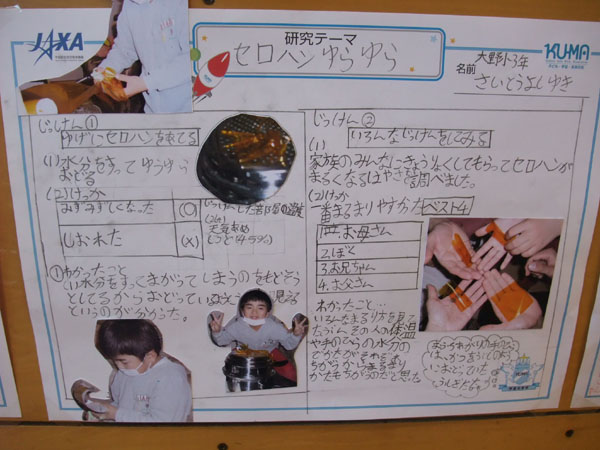 JAXA
研究テーマ
セロハンゆらゆら
KUMA
大野小3年
名前 さいとうよしゆき
じっけん①
ゆげにセロハンをあてる
(1)水分をすってゆらゆら
おどる
(2)けっか
みずみずしくなった (○)
しおれた (×)
じっけんした
天気
しつど(45%)
①わかったこと
(い水分をすってまがってしまうのをもどそう
としてるからおどって
というのが分かった。
じっけん②
いろんなじっけんをしてみる
(1)
家族のみんなにきょう力してもらってセロハンが
まるくなるはやさを調べました。
(2)けっか
一番まるまりやすかったベスト4
1. お母さん
2. ぼく
3. お兄ちゃん
4. お父さん
わかったこと…
いろんなまるまり方を見て
たぶん その人の体温
や手のひらの水分の
でかたが
ちがうから まるまり
かたもちがうのだと思った